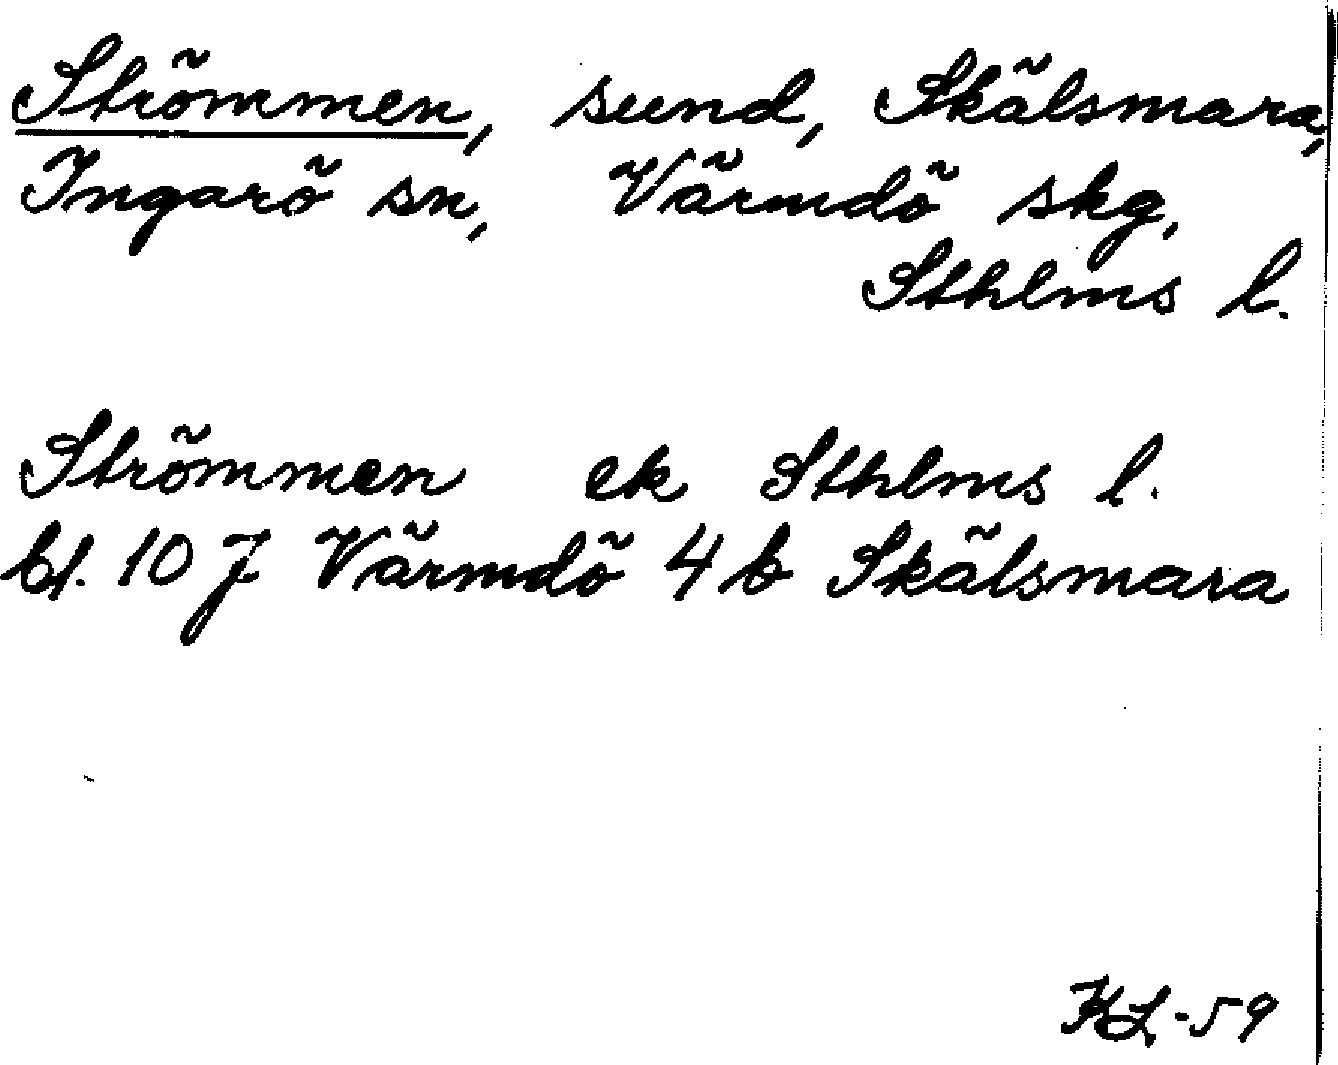 Strömmen, sund, Skälsmara,
Ingarö sn, Värmdö skg,
Sthlms l.
Strömmen ek Sthlms l.
bl. 10 J Värmdö 4 b Skälsmara
KL-59